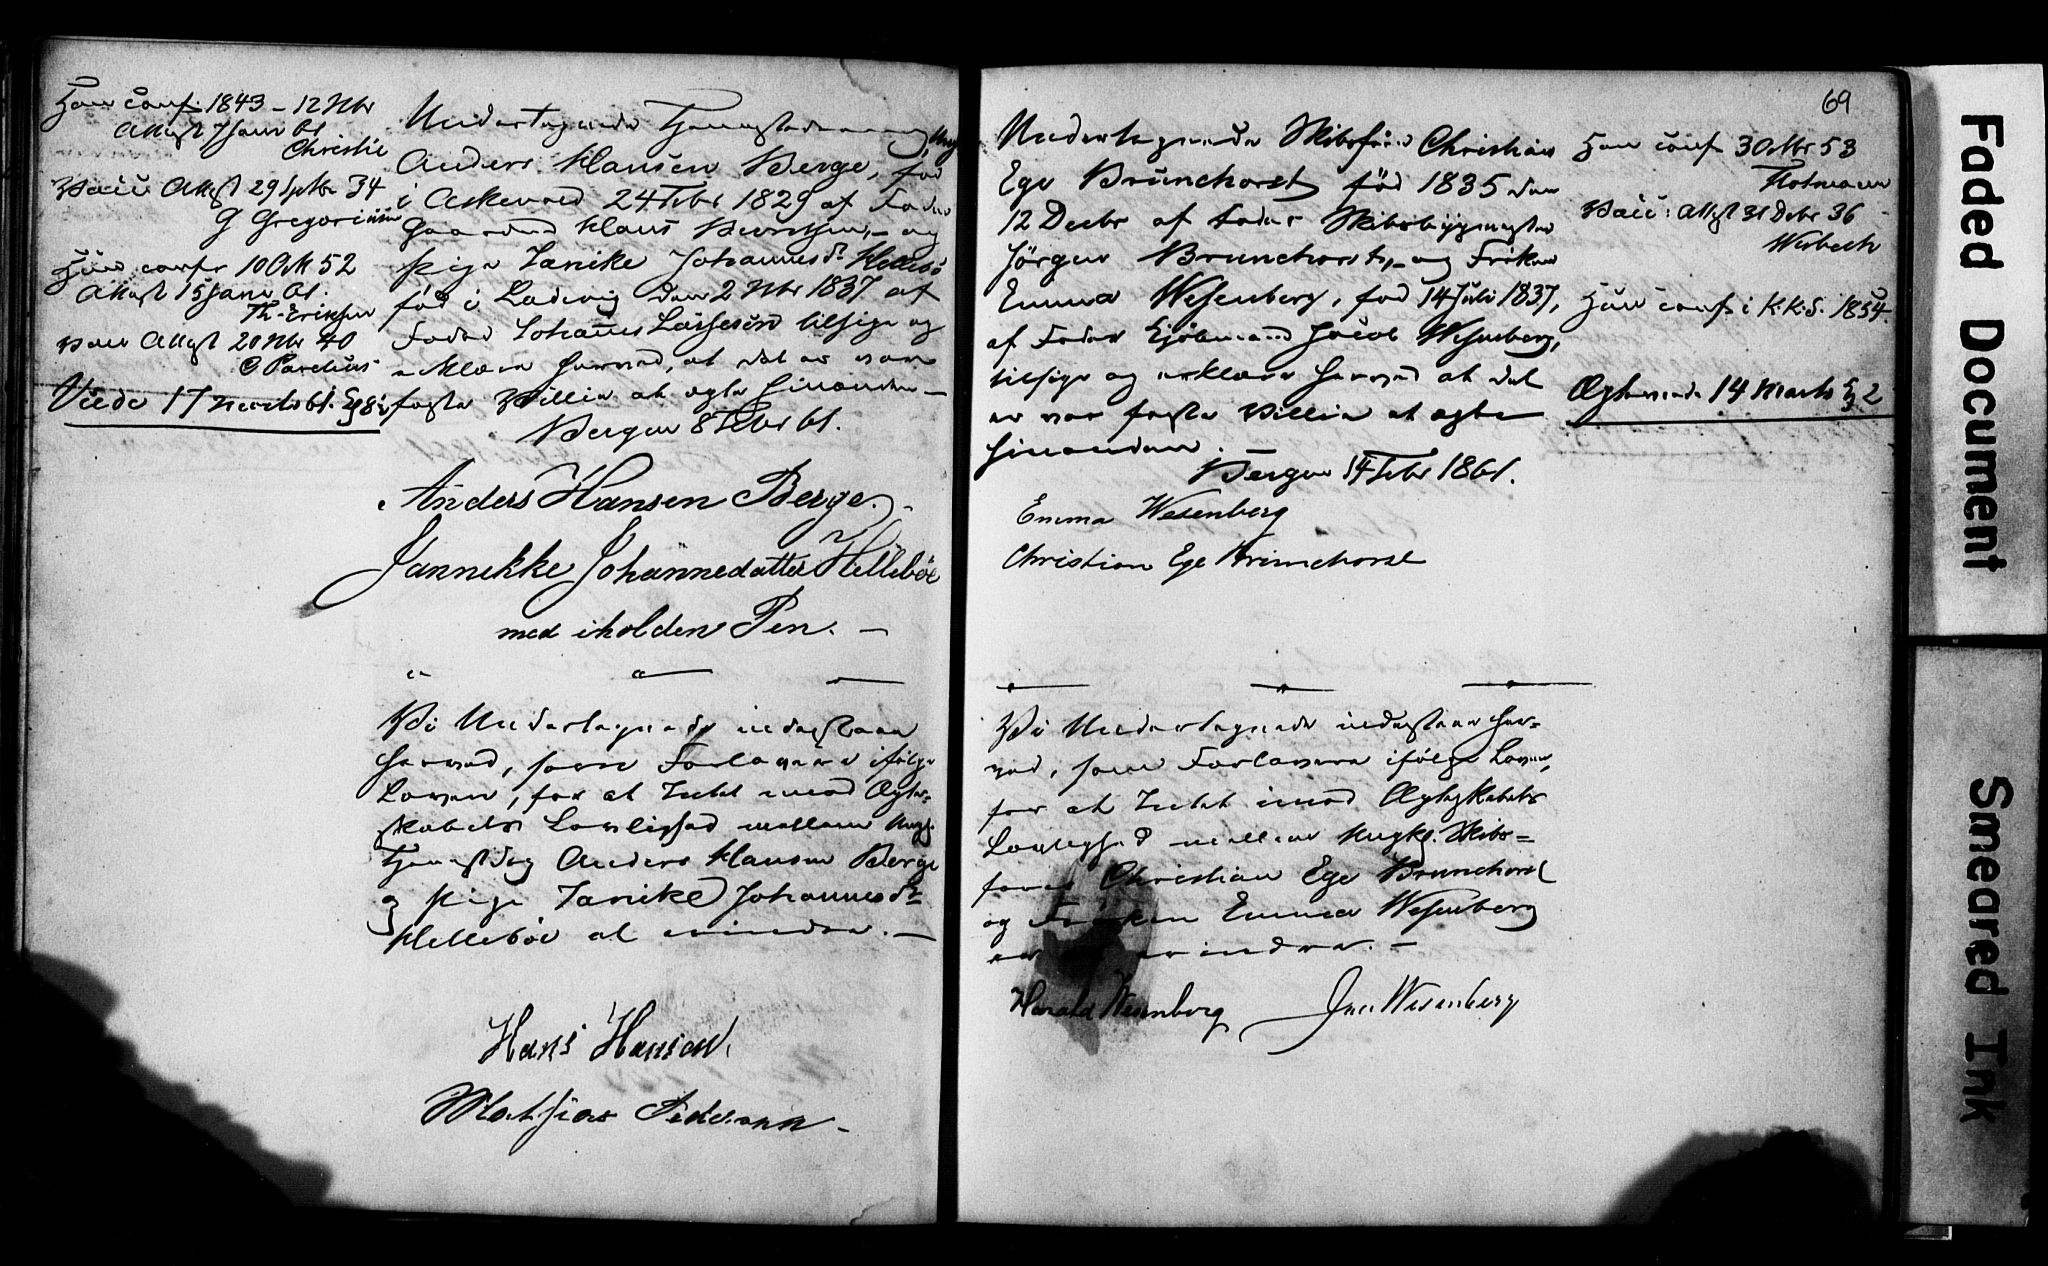 Han conf. 1843 - 12 Nbr
Attest 7 Janr 61
Christie
Vacc Attest 29 Septbr 34
G Gregorius
Hun confr 10 Oct 52
Attest 15 Janr 61.
Th. Eriksen
Vacc Attest 20 Nbr 40
C Parelius
Viede 17 Marts 61.
Undertegnede Ungk
Anders Hansen Berge, fød
i Askevold 24 Febr 1829 af Fader
Gaardmd Hans Berentsen, - og
Pige Janike Johannesdr Hellebö
fød i Ladevig den 2 Nbr 1837 af
Fader Johannes Lassesen tilsige og
erklære herved, at det er vor
faste Villie at ægte hinanden -
Bergen 8 Febr 61.
Anders Hansen Berge.
Jannekke Johannedatter Hellebøe
med iholden Pen. -
Vi Undertegnede indestaaer
herved, som Forlovere ifølge
Loven, for at Intet imod Ægte-
skabets Lovlighed mellem Ungk.
Anders Hansen Berge
og Pige Janike Johannesdr
Helleböe at erindre. -
Hans Hansen.
Mathias Pedersen -
69
Undertegnede Skibsförer Christian
Ege Brunchorst fød 1835 den
12 Decbr af Fader Skibsbygmester
Jörgen Brunchorst, - og Fröken
Emma Wesenberg, fød 14 Juli 1837,
af Fader Kjöbmand Jacob Wesenberg,
tilsige og erklære herved at det
er vor faste Villie at ægte
hinanden.
Bergen 14 Febr 1861.
Emma Wesenberg
Christian Ege Brunchorst
Vi Undertegnede indestaaer her-
ved, som Forlovere ifølge Loven,
for at Intet imod Ægteskabets
Lovlighed mellem Ungk. Skibs-
förer Christian Ege Brunchorst
og Fröken Emma Wesenberg
er at erindre. -
Harald Wesenberg Jac Wesenberg
Han conf 3 Oktbr 53
Vacc: Attest 31 Decbr 36
Wisbech
Hun conf i K.K.S. 1854.
Ægteviede 14 Marts
Faded Document
Smeared Ink